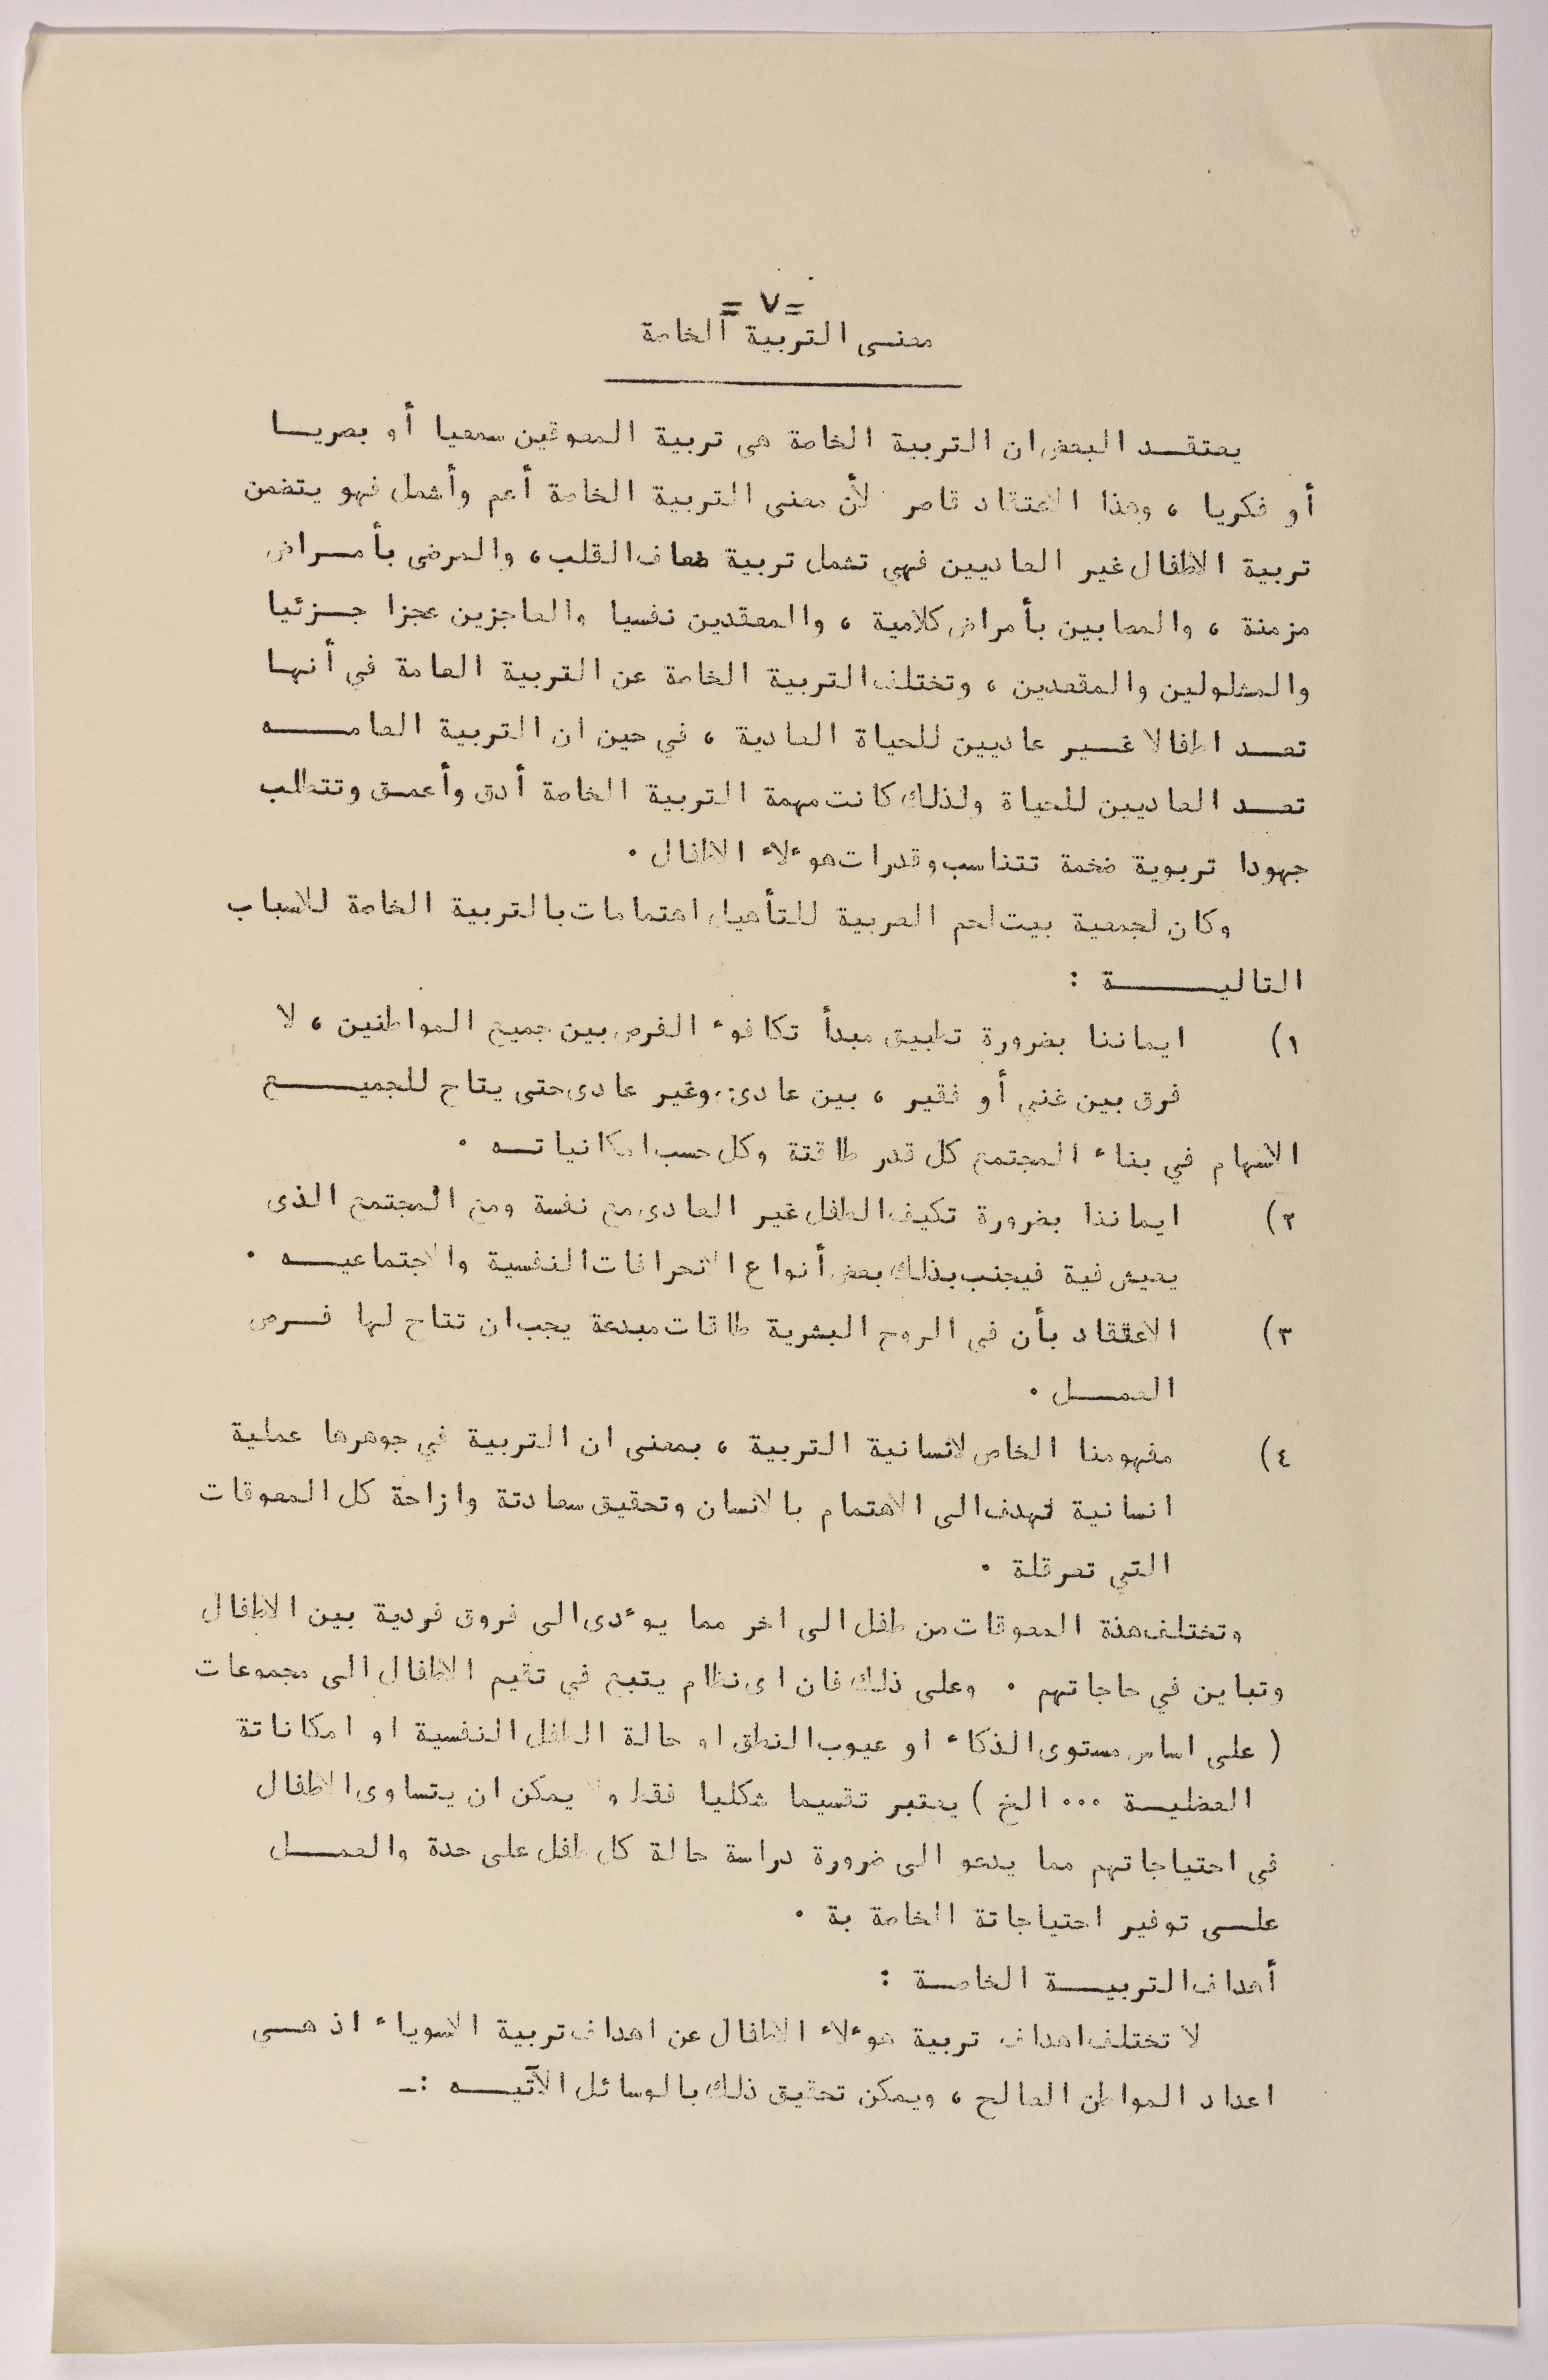 = ٧ =
معنى التربية الخاصة
يعتقد البعض ان التربية الخاصة هى تربية المعوقين سمعيا أو بصريا
أو فكريا ، وهذا الاعتقاد قاصر لأن معنى التربية الخاصة أعم وأشمل فهو يتضمن
تربية الاطفال غير العاديين فهي تشمل تربية ضعاف القلب ، والمرضى بأمراض
مزمنة ، والمصابين بأمراض كلامية ، والمعقدين نفسيا والعاجزين عجزا جزئيا
والمشلولين والمقعدين ، وتختلف التربية الخاصة عن التربية العامة في أنها
تعد اطفالا غير عاديين للحياة العادية ، في حين ان التربية العامه
تعد العاديين للحياة ولذلك كانت مهمة التربية الخاصة أدق وأعمق وتتطلب
جهودا تربوية ضخمة تتناسب وقدرات هوءلاء الاطفال .
وكان لجمعية بيت لحم العربية للتأهيل اهتمامات بالتربية الخاصة للاسباب
التالية :
١) ايماننا بضرورة تطبيق مبدأ تكافوء الفرص بين جميع المواطنين ، لا
فرق بين غني أو فقير ، بين عادى وغير عادى حتى يتاح للجميع
الاسهام في بناء المجتمع كل قدر طاقتة وكل حسب امكانياته .
٢) ايماننا بضرورة تكيف الطفل غير العادى مع نفسة ومع المجتمع الذى
يعيش فية فيجنب بذلك بعض أنواع الانحرافات النفسية والاجتماعيه .
٣) الاعتقاد بأن في الروح البشرية طاقات مبدعة يجب ان تتاح لها فرص
العمل .
٤) مفهومنا الخاص لانسانية التربية ، بمعنى ان التربية في جوهرها عملية
انسانية تهدف الى الاهتمام بالانسان وتحقيق سعادتة وازاحة كل المعوقات
التي تعرقلة .
وتختلف هذة المعوقات من طفل الى اخر مما يوءدى الى فروق فردية بين الاطفال
وتباين في حاجاتهم . وعلى ذلك فان اى نظام يتبع في تقيم الاطفال الى مجموعات
( على اساس مستوى الذكاء او عيوب النطق او حالة الطفل النفسية او امكاناتة
العضلية ... الخ ) يعتبر تقسيما شكليا فقط ولا يمكن ان يتساوى الاطفال
في احتياجاتهم مما يدعو الى ضرورة دراسة حالة كل طفل على حدة والعمل
على توفير احتياجاتة الخاصة بة .
أهداف التربية الخاصة :
لا تختلف اهداف تربية هوءلاء الاطفال عن اهداف تربية الاسوياء اذ هي
اعداد المواطن الصالح ، ويمكن تحقيق ذلك بالوسائل الآتيه :-